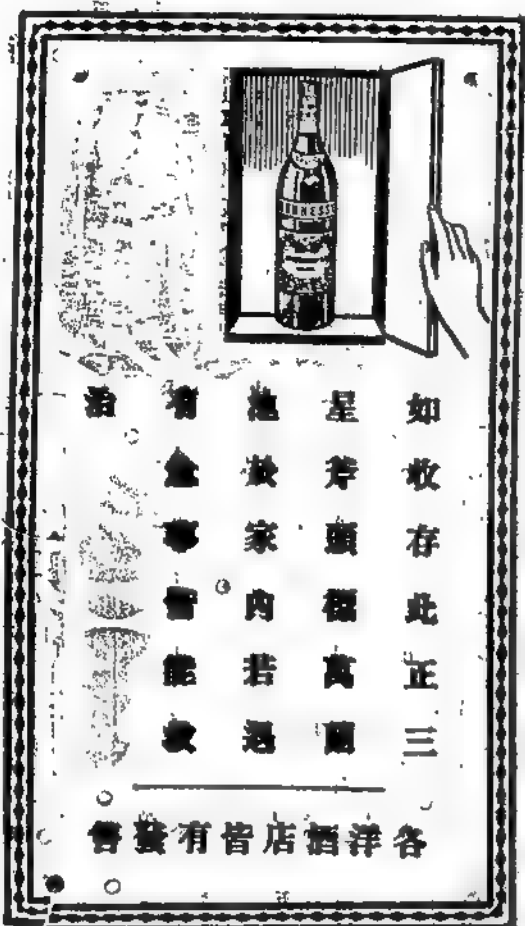 HENNESSY
如收存此正三
星斧頭標萬蘭
地於家內若遇
有急事皆能救
治
各洋酒店皆有發售